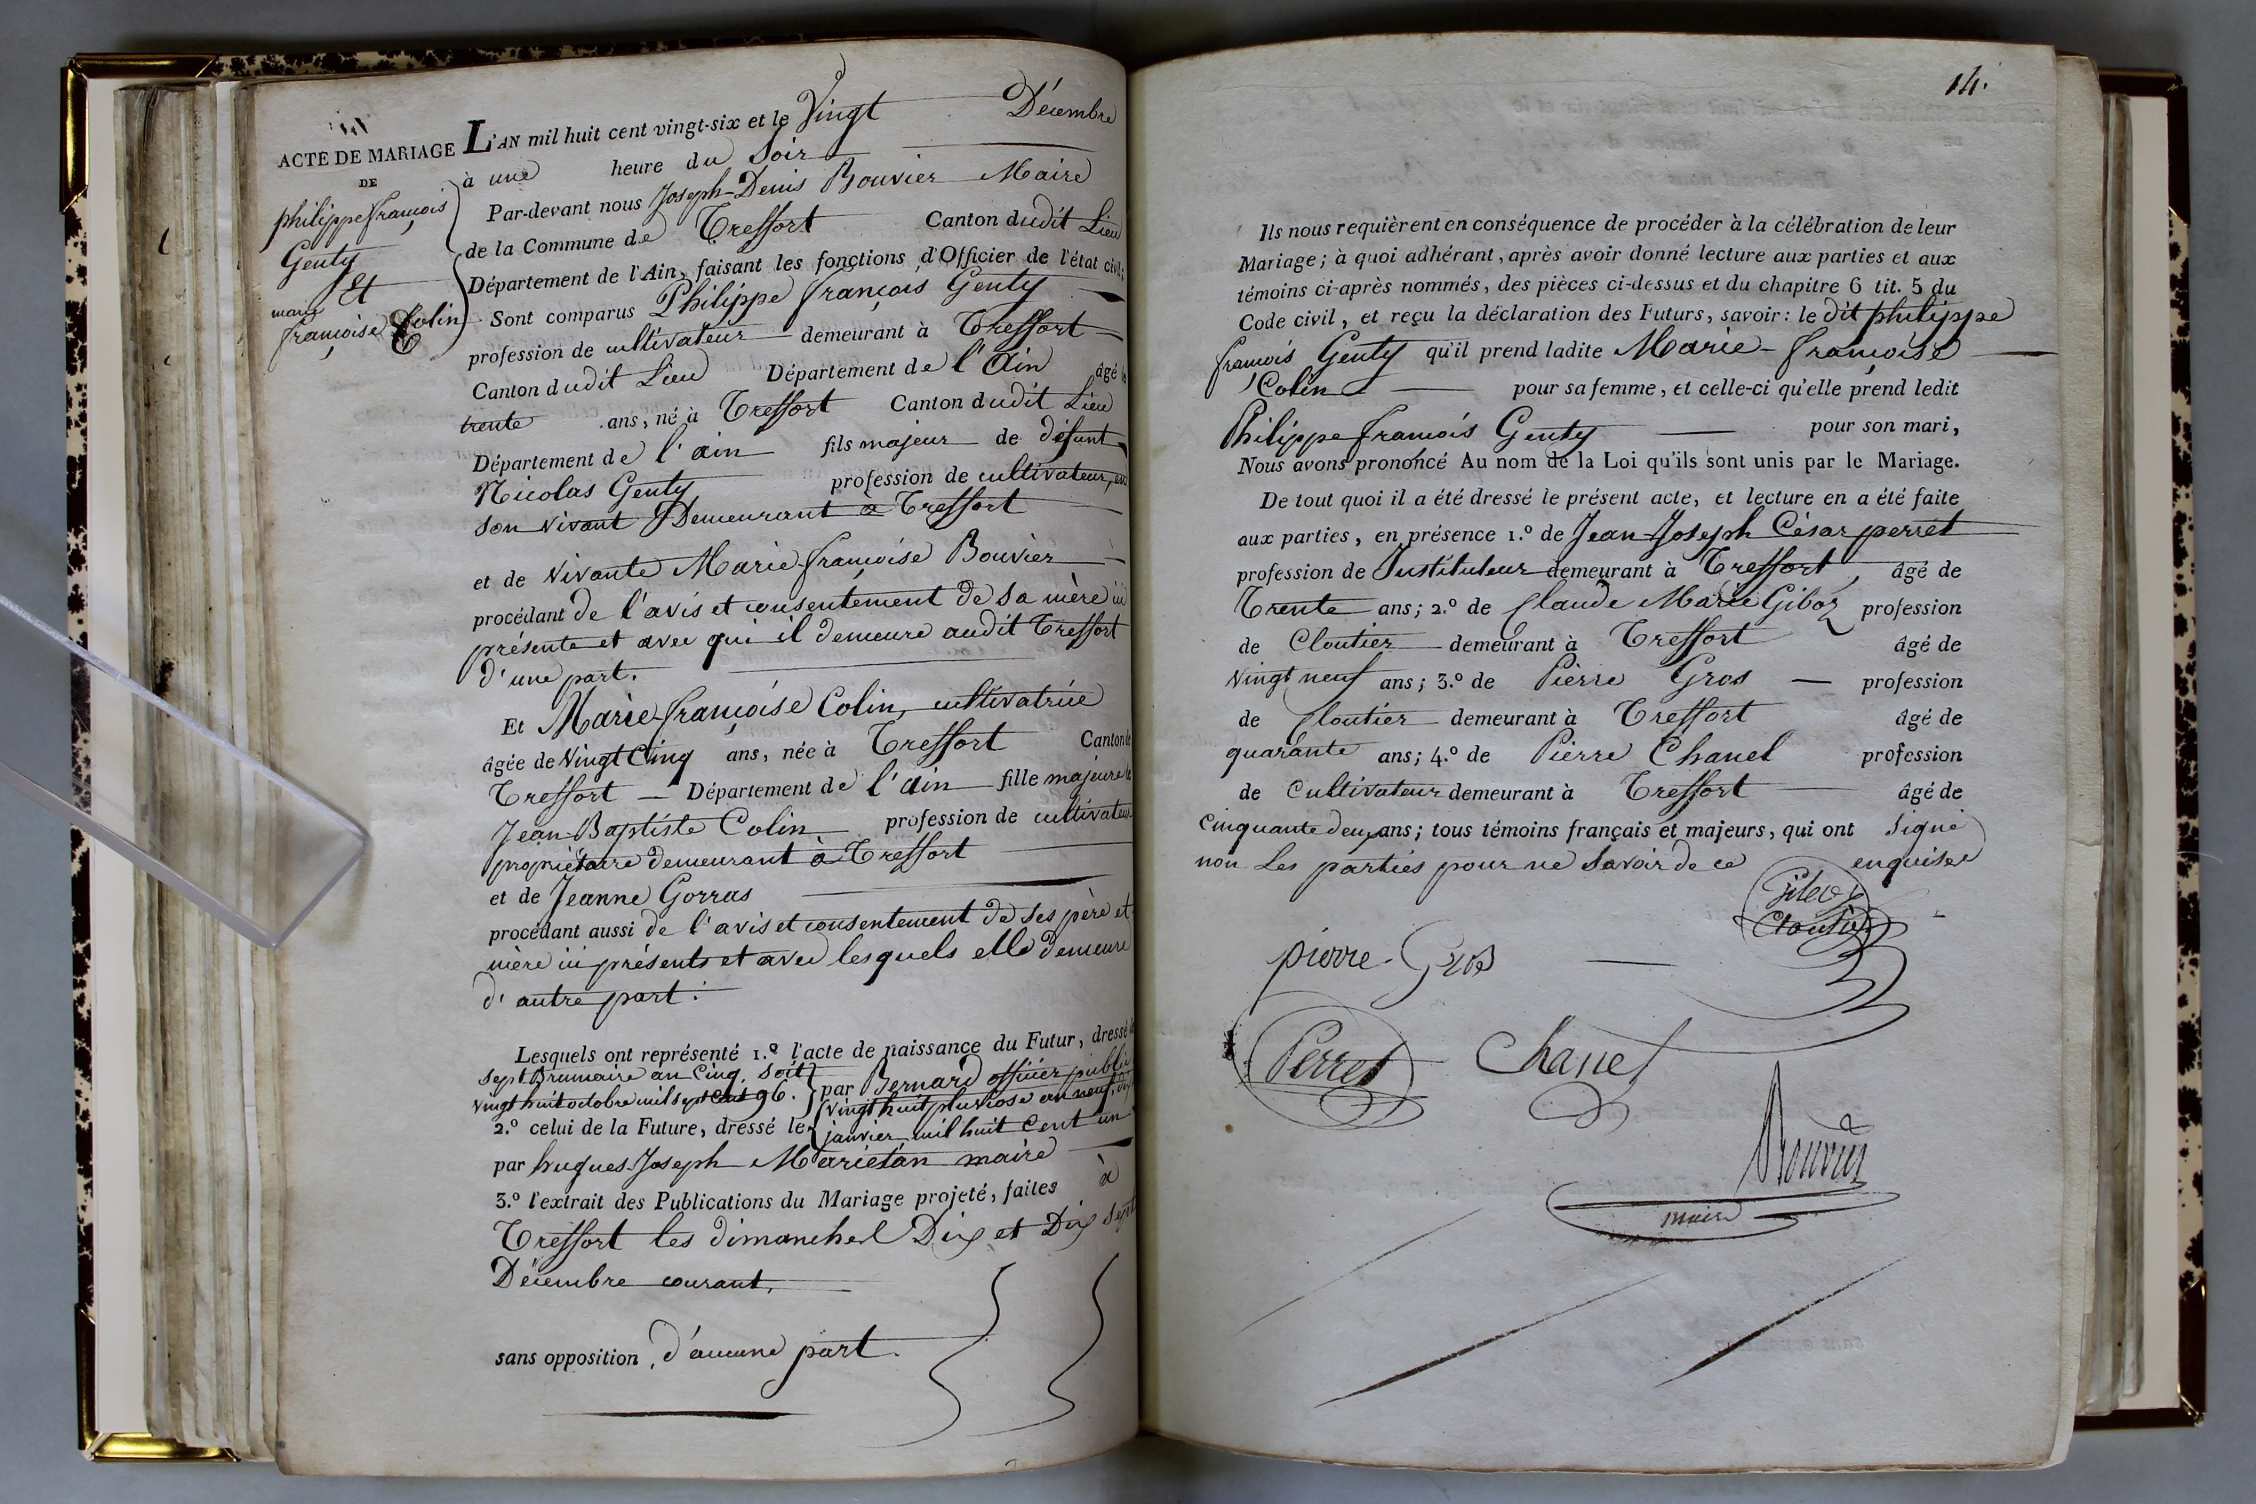 ACTE DE MARIAGE
DE
philippe françois
Genty
Et
marie
françoise Colin
L'AN mil huit cent vingt-six et le Vingt Décembre
à une heure du Soir
Par-devant nous Joseph-Denis Bouvier Maire
de la Commune de Treffort Canton dudit Lieu
Département de l'Ain, faisant les fonctions d'Officier de l'état civil;
Sont comparus Philippe françois Genty
profession de cultivateur demeurant à Treffort
Canton dudit Lieu Département de l'Ain âgé de
trente ans, né à Treffort Canton dudit Lieu
Département de l'ain fils majeur de défunt
Nicolas Genty profession de cultivateur, en
son vivant Demeurant à Treffort
et de vivante Marie françoise Bouvier
procédant de l'avis et consentement de sa mère ici
présente et avec qui il demeure audit Treffort
d'une part.
Et Marie françoise Colin, cultivatrice
âgée de Vingt Cinq ans, née à Treffort Canton de
Treffort Département de l'ain fille majeure de
Jean-Baptiste Colin profession de cultivateur
propriétaire demeurant à Treffort
et de Jeanne Gorras
procédant aussi de l'avis et consentement de ses père et
mère ici présents et avec lesquels elle demeure
d'autre part.
Lesquels ont représenté 1.º l'acte de naissance du Futur, dressé le
sept Brumaire an Cinq, soit
vingt huit octobre mil sept cent 96. par Bernard officier public
2.º celui de la Future, dressé le vingt huit pluviose an neuf, dix
janvier mil huit cent un
par hugues Joseph Marietan maire
3.º l'extrait des Publications du Mariage projeté, faites à
Treffort les dimanches Dix et Dix sept
Décembre courant,
sans opposition, d'aucune part.
14.
Ils nous requièrent en conséquence de procéder à la célébration de leur
Mariage; à quoi adhérant, après avoir donné lecture aux parties et aux
témoins ci-après nommés, des pièces ci-dessus et du chapitre 6 tit. 5 du
Code civil, et reçu la déclaration des Futurs, savoir: le dit philippe
françois Genty qu'il prend ladite Marie-françoise
Colin pour sa femme, et celle-ci qu'elle prend ledit
Philippe françois Genty pour son mari,
Nous avons prononcé Au nom de la Loi qu'ils sont unis par le Mariage.
De tout quoi il a été dressé le présent acte, et lecture en a été faite
aux parties, en présence 1.º de Jean Joseph César perret
profession de Instituteur demeurant à Treffort, âgé de
Trente ans; 2.º de Claude Marie Giboz profession
de Cloutier demeurant à Treffort âgé de
Vingt neuf ans; 3.º de Pierre Gros profession
de Cloutier demeurant à Treffort âgé de
quarante ans; 4.º de Pierre Chanel profession
de Cultivateur demeurant à Treffort âgé de
Cinquante deux ans; tous témoins français et majeurs, qui ont signé
non Les parties pour ne Savoir de ce enquises
Giboz
Cloutier
pierre Gros
Perret Chanel
Bouvier
maire